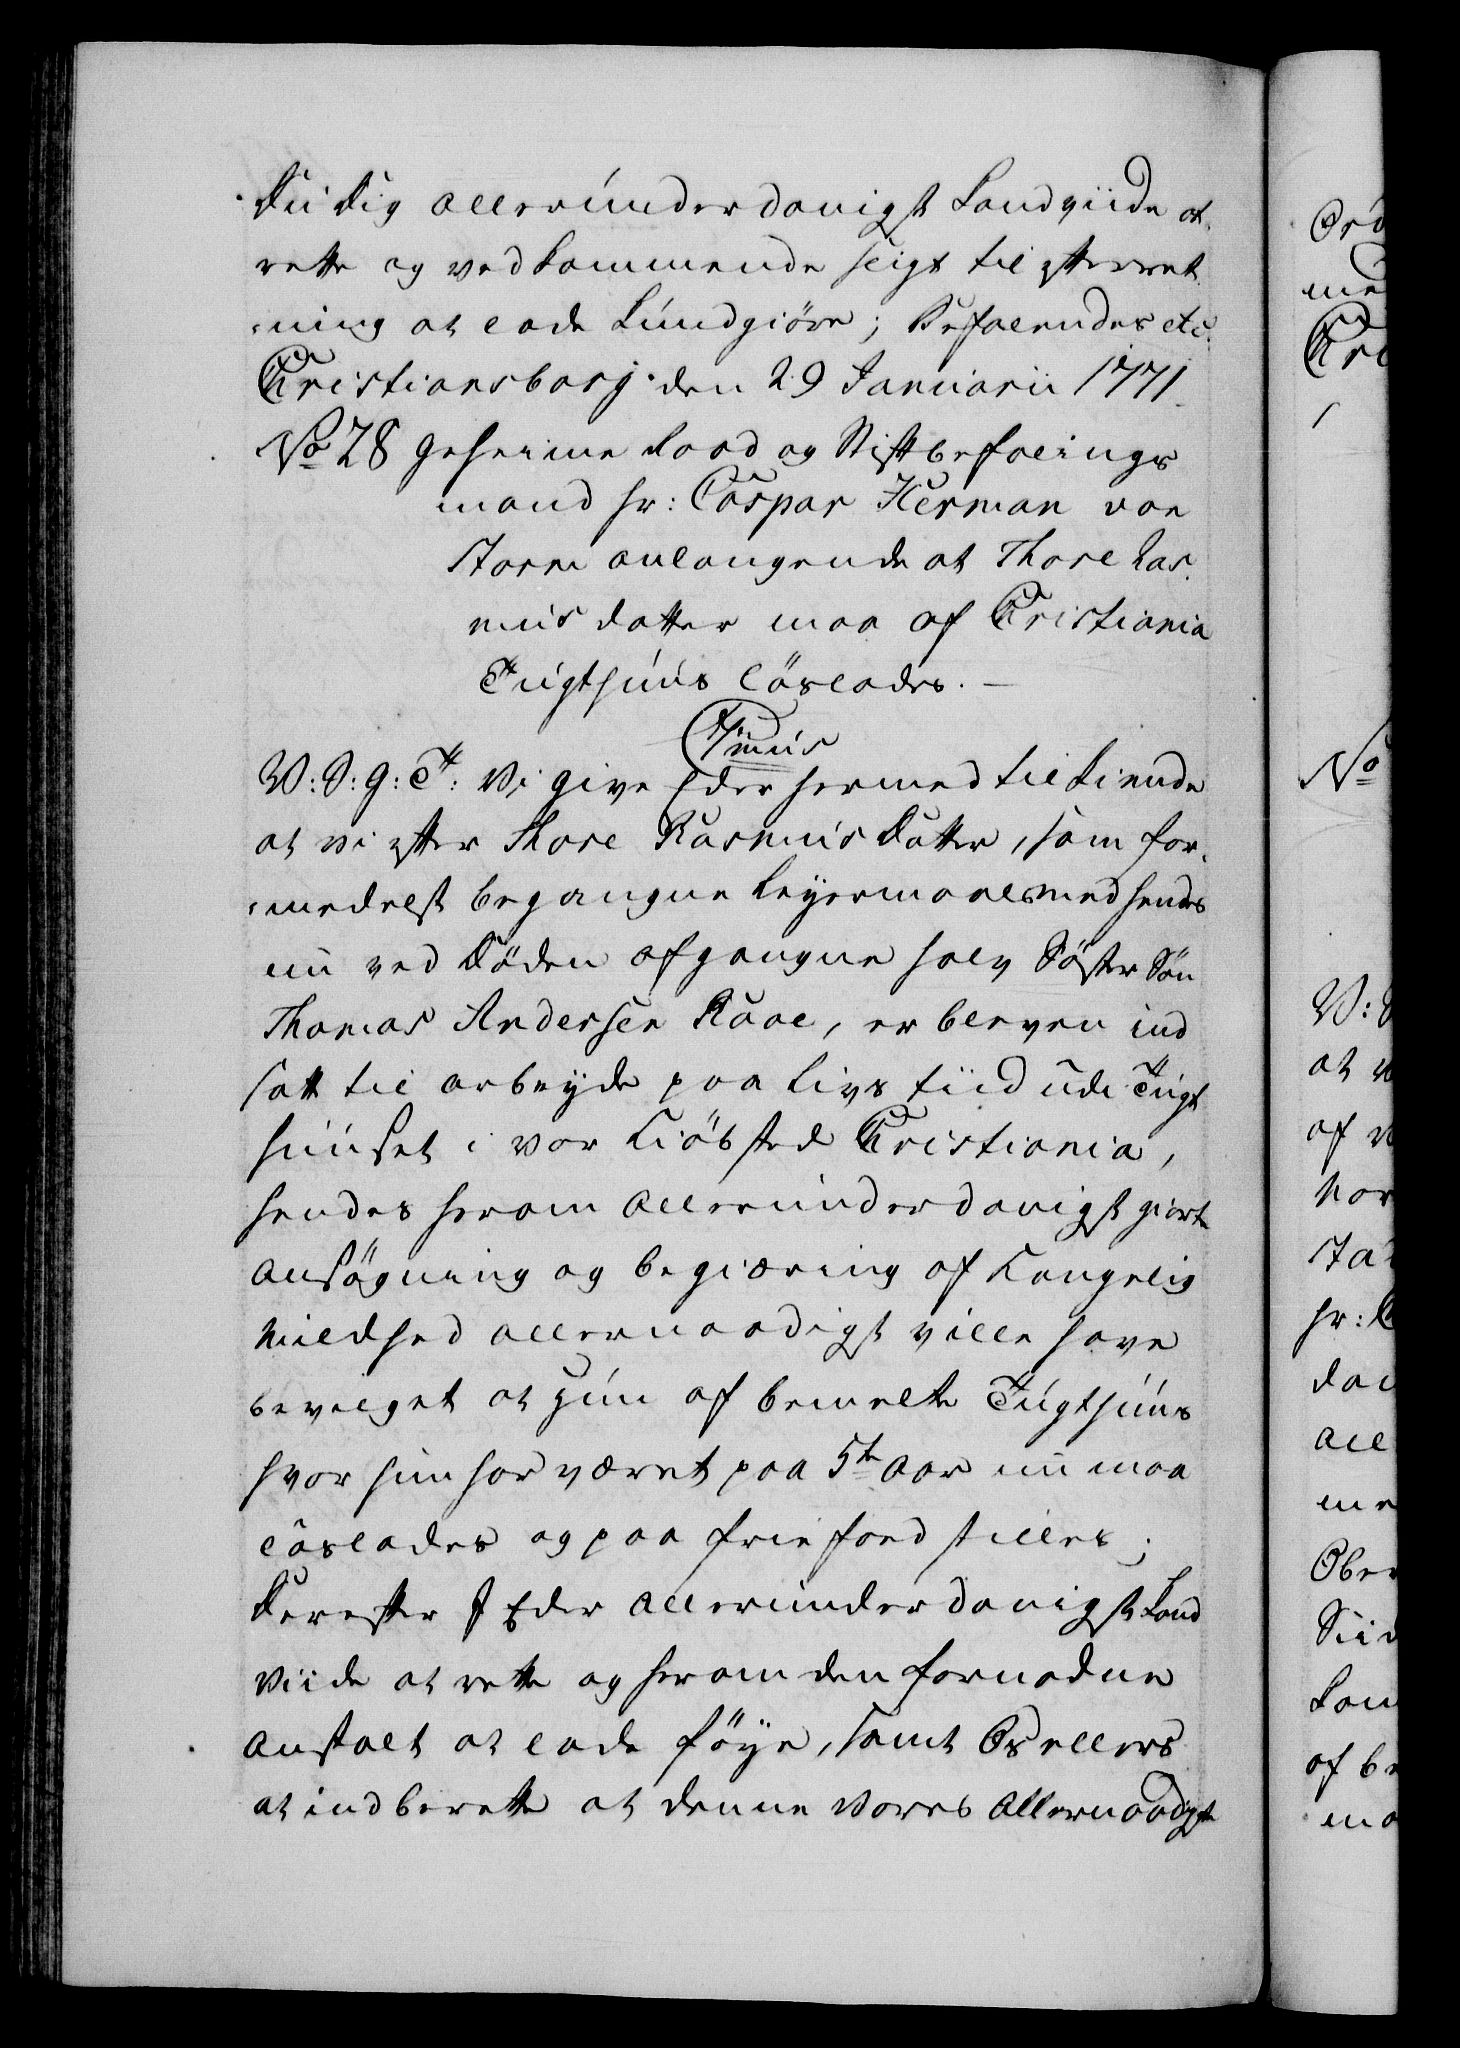 Du dig allerunderdanigst haver ved at
rette og vedkommende sligt til efterret¬
ning at lade kundgiöre; Befalendes etc:
Christiansborg den 29 Januarii 1771
No 28 Geheime Raad og Stiftbefalings
mand Hr: Caspar Herman von
Storm anlangende at Thore Ras¬
mus datter maa af Christiania
Tugthuus löslades. —
7mus
V: S: G: T: Vi give Eder hermed tilkiende
at vi efter Thore Rasmus Datter, som for¬
medelst begangne Leyermaal med hendes
nu ved Döden afgangne halv Söster Sön
Thomas Andersen Raae, er bleven ind
satt til arbeyde paa Livs tiid udi Tugt
huuset i vor Kiöbsted Christiania,
hendes herom allerunderdanigst giorte
Ansögning og begiæring af Kongelig
Mildhed allernaadigst ville have
bevilget at hun af bemelte Tugthuus
hvor hun har været paa 5te Aar nu maa
löslades og paa frie foed stilles;
Derefter I Eder allerunderdanigst
viide at rette og herom den fornødne
Anstalt at lade föye, samt Os ellers
at indberette at denne Vores Allernaadigste
Ord
No
V: S
at v
af v
Nor
Sta
Hr: C
dan
all
me
Ober
Kon
af be